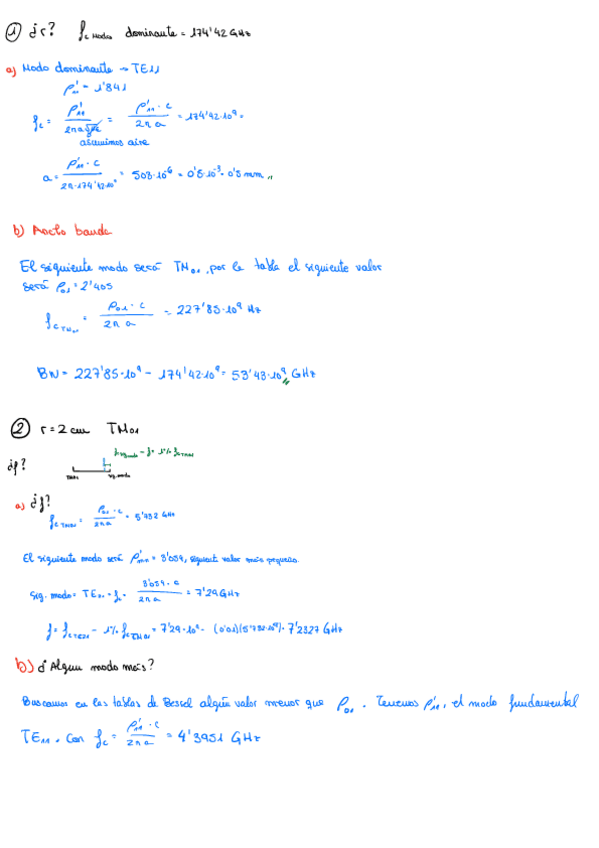 ① ¿r? fc Modo dominante = 174'42 GHz
a) Modo dominante → TE11
p'11 = 1'841
fc = p'11 / 2πa√με = p'11 · c / 2π a = 174'42·10⁹ =
asumimos aire
a = p'11 · c / 2π·174'42·10⁹ = 503·10⁻⁶ = 0'5·10⁻³ = 0'5 mm
b) Ancho banda
El siguiente modo será TM01, por la tabla el siguiente valor
será p01 = 2'405
fc TM01 = p01 · c / 2π a = 227'85·10⁹ Hz
BW = 227'85·10⁹ − 174'42·10⁹ = 53'43·10⁹ GHz
② r = 2 cm TM01
¿f?
a) ¿f?
fc TM01 = p01 · c / 2πa = 5'732 GHz
El siguiente modo será p'mn = 3'054, siguient valor más pequeño.
Sig. modo = TE21 = fc = 3'054 · c / 2π a = 7'29 GHz
f = fc TE21 − 1% fc TM01 = 7'29·10⁹ − (0'01)(5'732·10⁹) = 7'2327 GHz
b) ¿Algun modo más?
Buscamos en las tablas de Bessel algún valor menor que p01. Tenemos p'11, el modo fundamental
TE11. Con fc = p'11 · c / 2π a = 4'3951 GHz